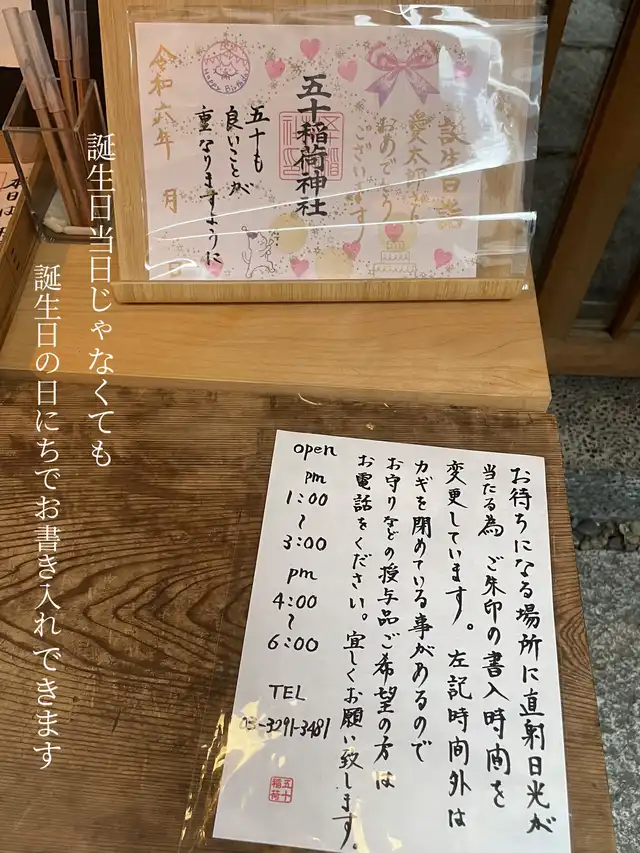 誕生日詣
愛太郎さん
おめでとう
ございます
五十稲荷神社
五十も
良いことが
重なりますように
令和六年 月
誕生日当日じゃなくても
誕生日の日にちでお書き入れできます
お待ちになる場所に直射日光が
当たる為 ご朱印の書入時間を
変更しています。左記時間外は
カギを閉めている事があるので
お守りなどの授与品ご希望の方は
お電話をください。宜しくお願い致します。
open
pm
1:00
〜
3:00
pm
4:00
〜
6:00
TEL
03-3291-3481
五十
稲荷